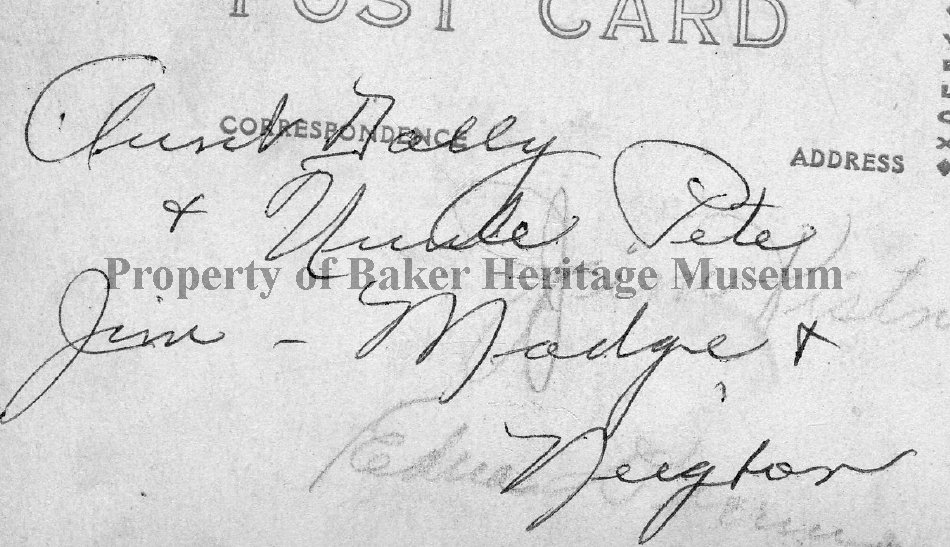 POST CARD
CORRESPONDENCE
ADDRESS
Aunt Bally
& Uncle Pete
Property of Baker Heritage Museum
Jim - Madge &